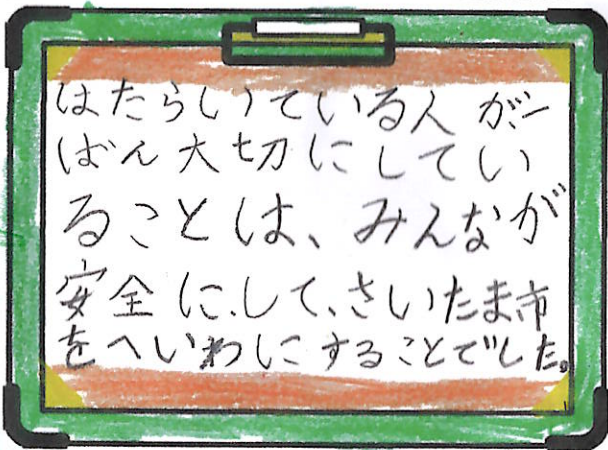 はたらいている人が、一
ばん大切にしてい
ることは、みんなが
安全に、して、さいたま市
をへいわにすることでした。